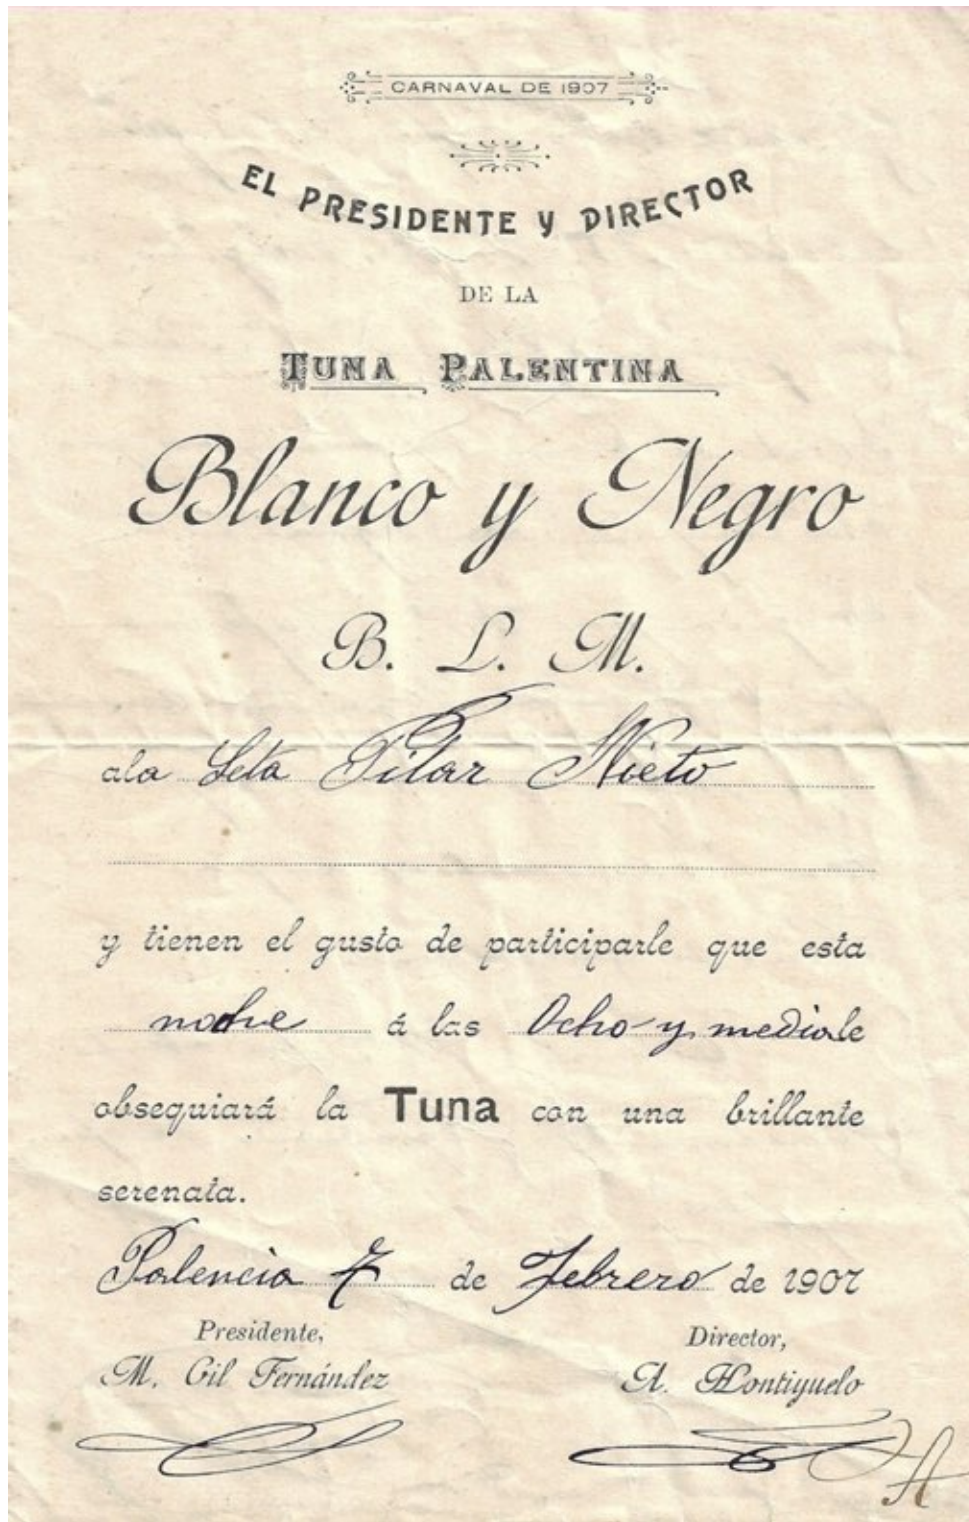 CARNAVAL DE 1907
EL PRESIDENTE Y DIRECTOR
DE LA
TUNA PALENTINA
Blanco y Negro
B. L. M.
ala Srta Pilar Nieto
y tienen el gusto de participarle que esta
noche á las Ocho y media le
obsequiará la Tuna con una brillante
serenata.
Palencia 7 de Febrero de 1907
Presidente, Director,
M. Gil Fernández A. Hontiyuelo